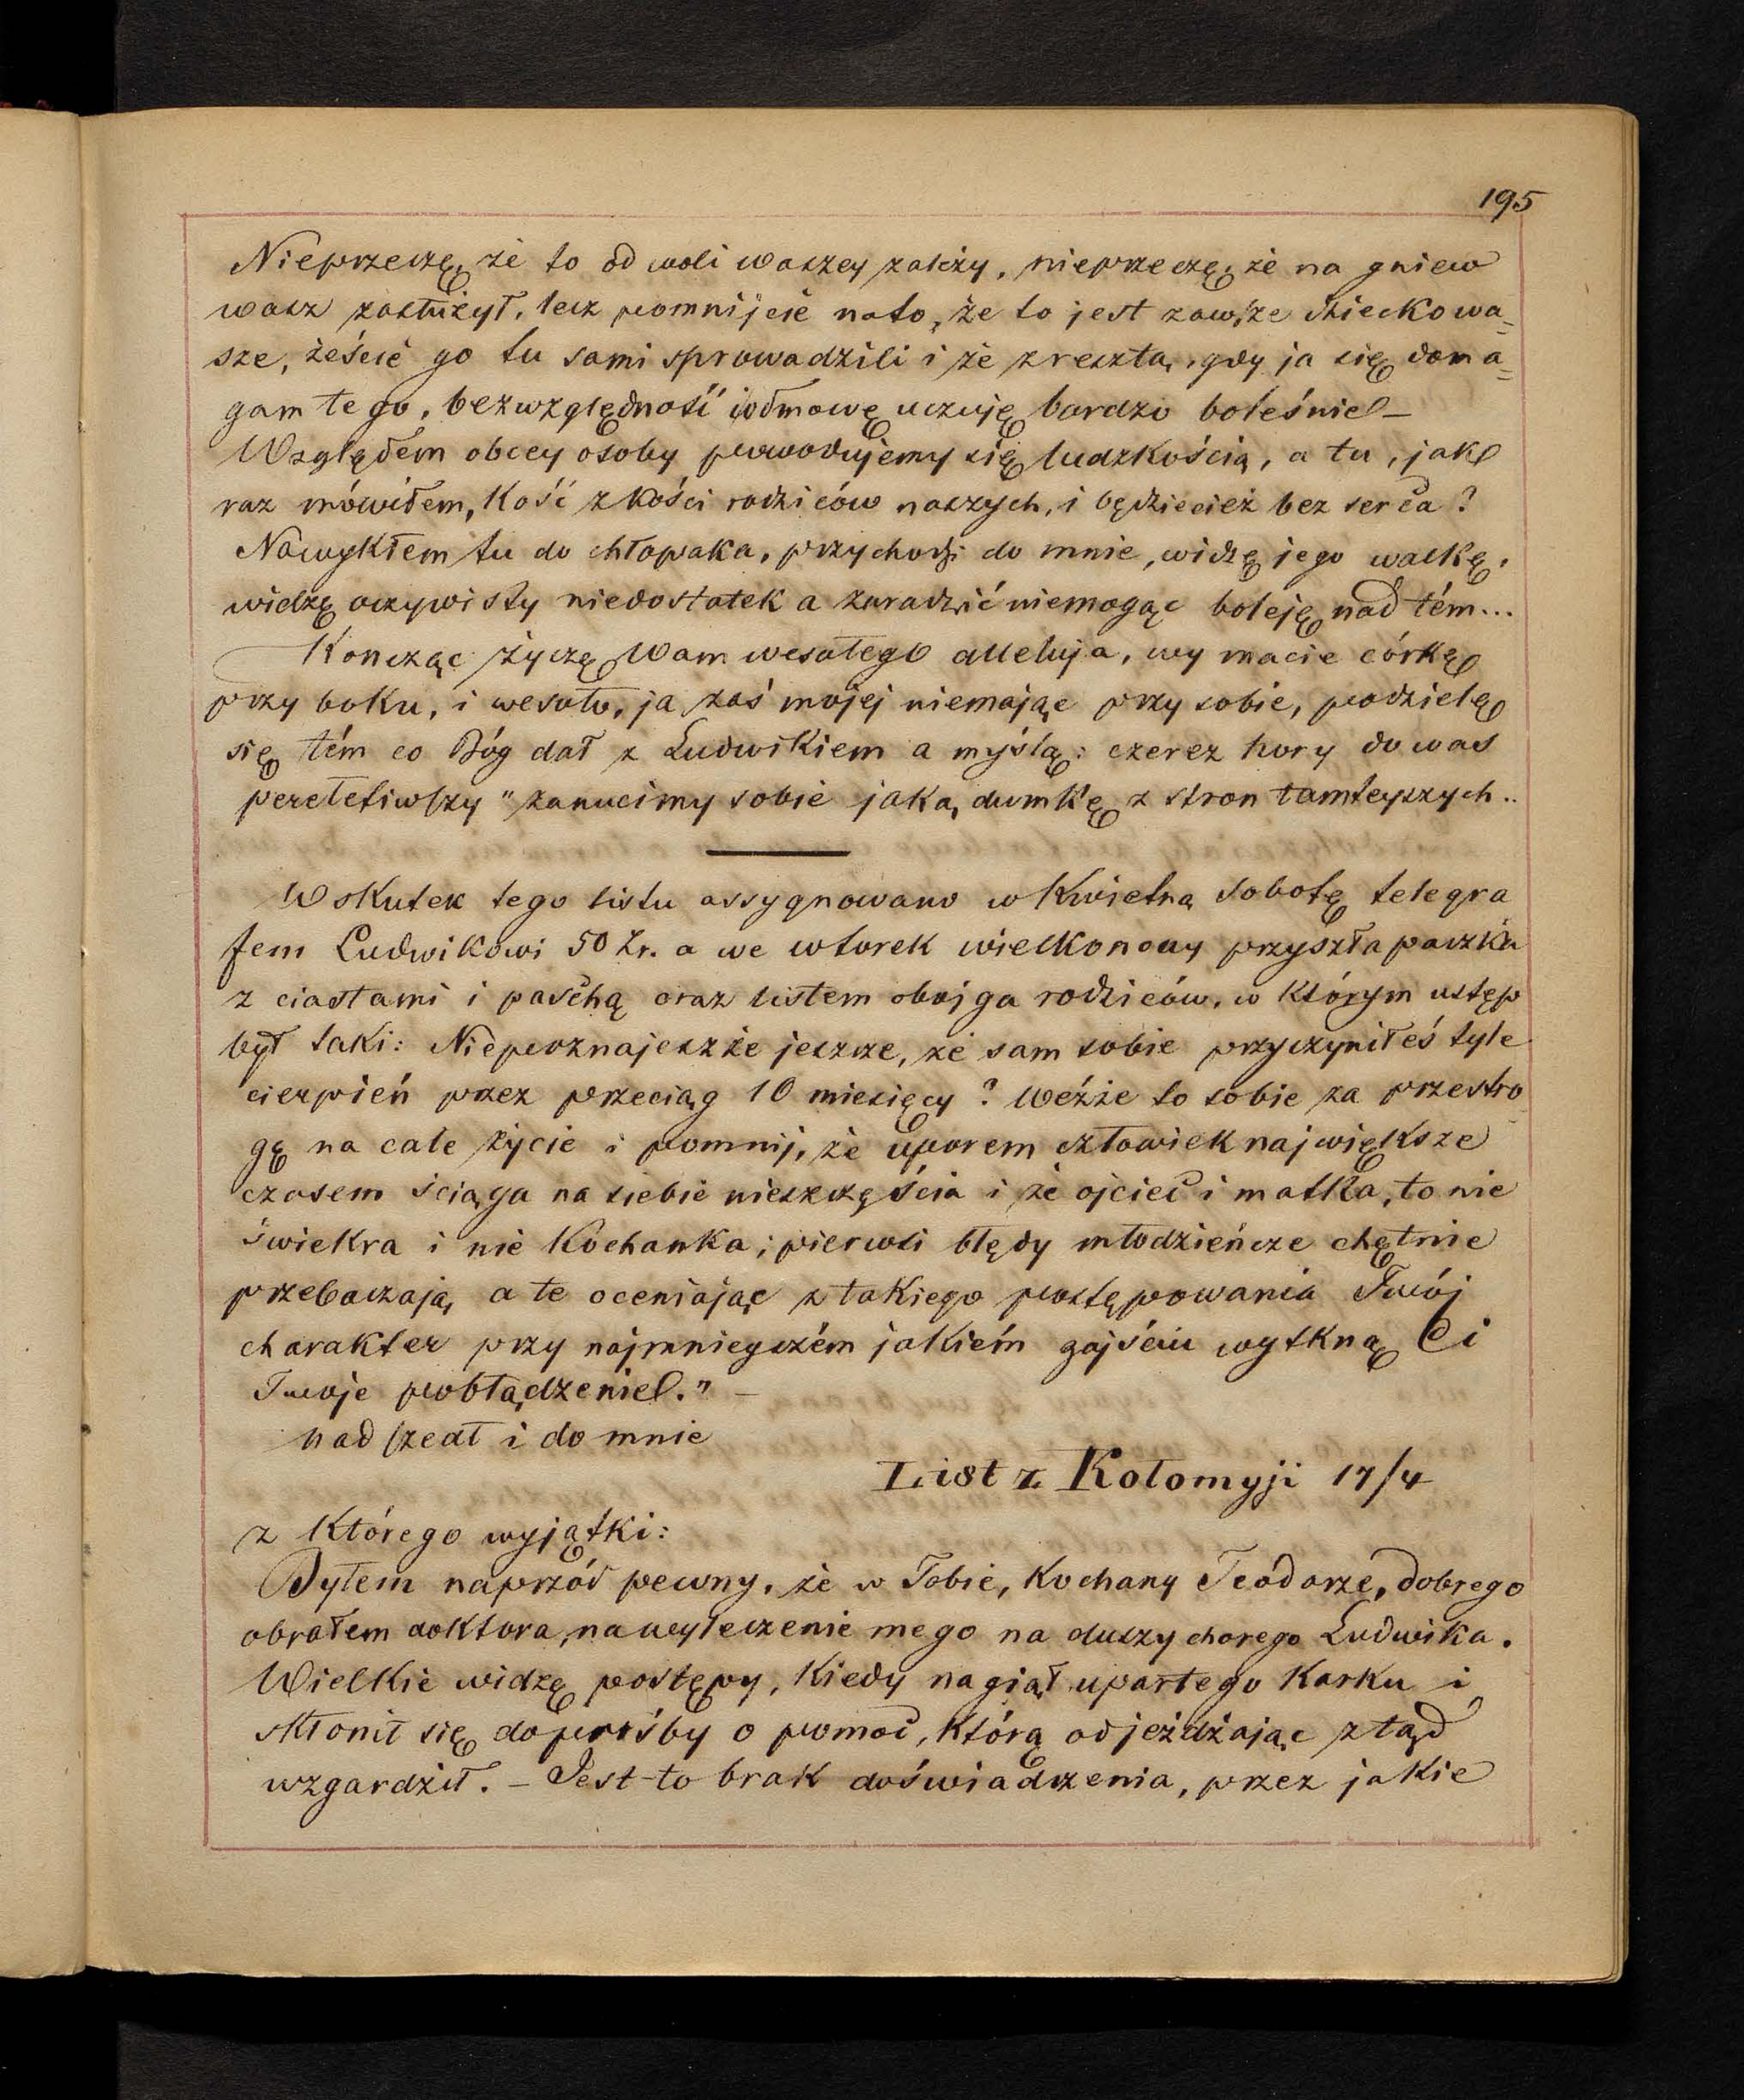 195
Nieprzeczę, że to od woli waszey zależy, nieprzeczę, że na gniew
wasz zasłużył, lecz pomnijcie nato, że to jest zawsze dziecko wa=
sze, żeście go tu sami sprowadzili i że zresztą, gdy ja się doma=
gam tego, bezwzględność i odmowę uczuję bardzo boleśnie –
Względem obcey osoby powodujemy się ludzkością, a tu, jak
raz mówiłem, kość z kości rodziców naszych, i będziecież bez serca?
Nawykłem tu do chłopaka, przychodzi do mnie, widzę jego walkę,
widzę oczywisty niedostatek a zaradzić niemogąc boleję nad tém...
Kończąc życzę Wam wesołego alleluja, wy macie córkę
przy boku, i wesoło, ja zaś mojej niemając przy sobie, podzielę
się tém co Bóg dał z Ludwikiem a myślą: czerez hory do was
perełetiwszy" zanucimy sobie jaką dumkę z stron tamteyszych..
Wskutek tego listu assygnowano w Kwietną sobotę telegra
fem Ludwikowi 50 Zr. a we wtorek wielkonocny przyszła paczka
z ciastami i paschą oraz listem obojga rodziców, w którym ustęp
był taki: Niepoznajeszże jeszcze, że sam sobie przyczyniłeś tyle
cierpień przez przeciąg 10 miesięcy? Weźże to sobie za przestro
gę na całe życie i pomnij, że uporem człowiek największe
czasem ściąga na siebie nieszczęścia i że ojciec i matka, to nie
świekra i nie kochanka; pierwsi błędy młodzieńcze chętnie
przebaczają, a te oceniając z takiego postępowania Twój
charakter przy najmnieyszém jakiém zajściu wytkną Ci
Twoje pobłądzenie." –
nadszedł i do mnie
List z Kołomyji 17/4
z którego wyjątki:
Byłem naprzód pewny, że w Tobie, kochany Teodorze, dobrego
obrałem doktora, na wyleczenie mego na duszy chorego Ludwika.
Wielkie widzę postępy, kiedy nagiął upartego karku i
skłonił się do prośby o pomoc, którą odjeżdżając ztąd
wzgardził. – Jest to brak doświadczenia, przez jakie